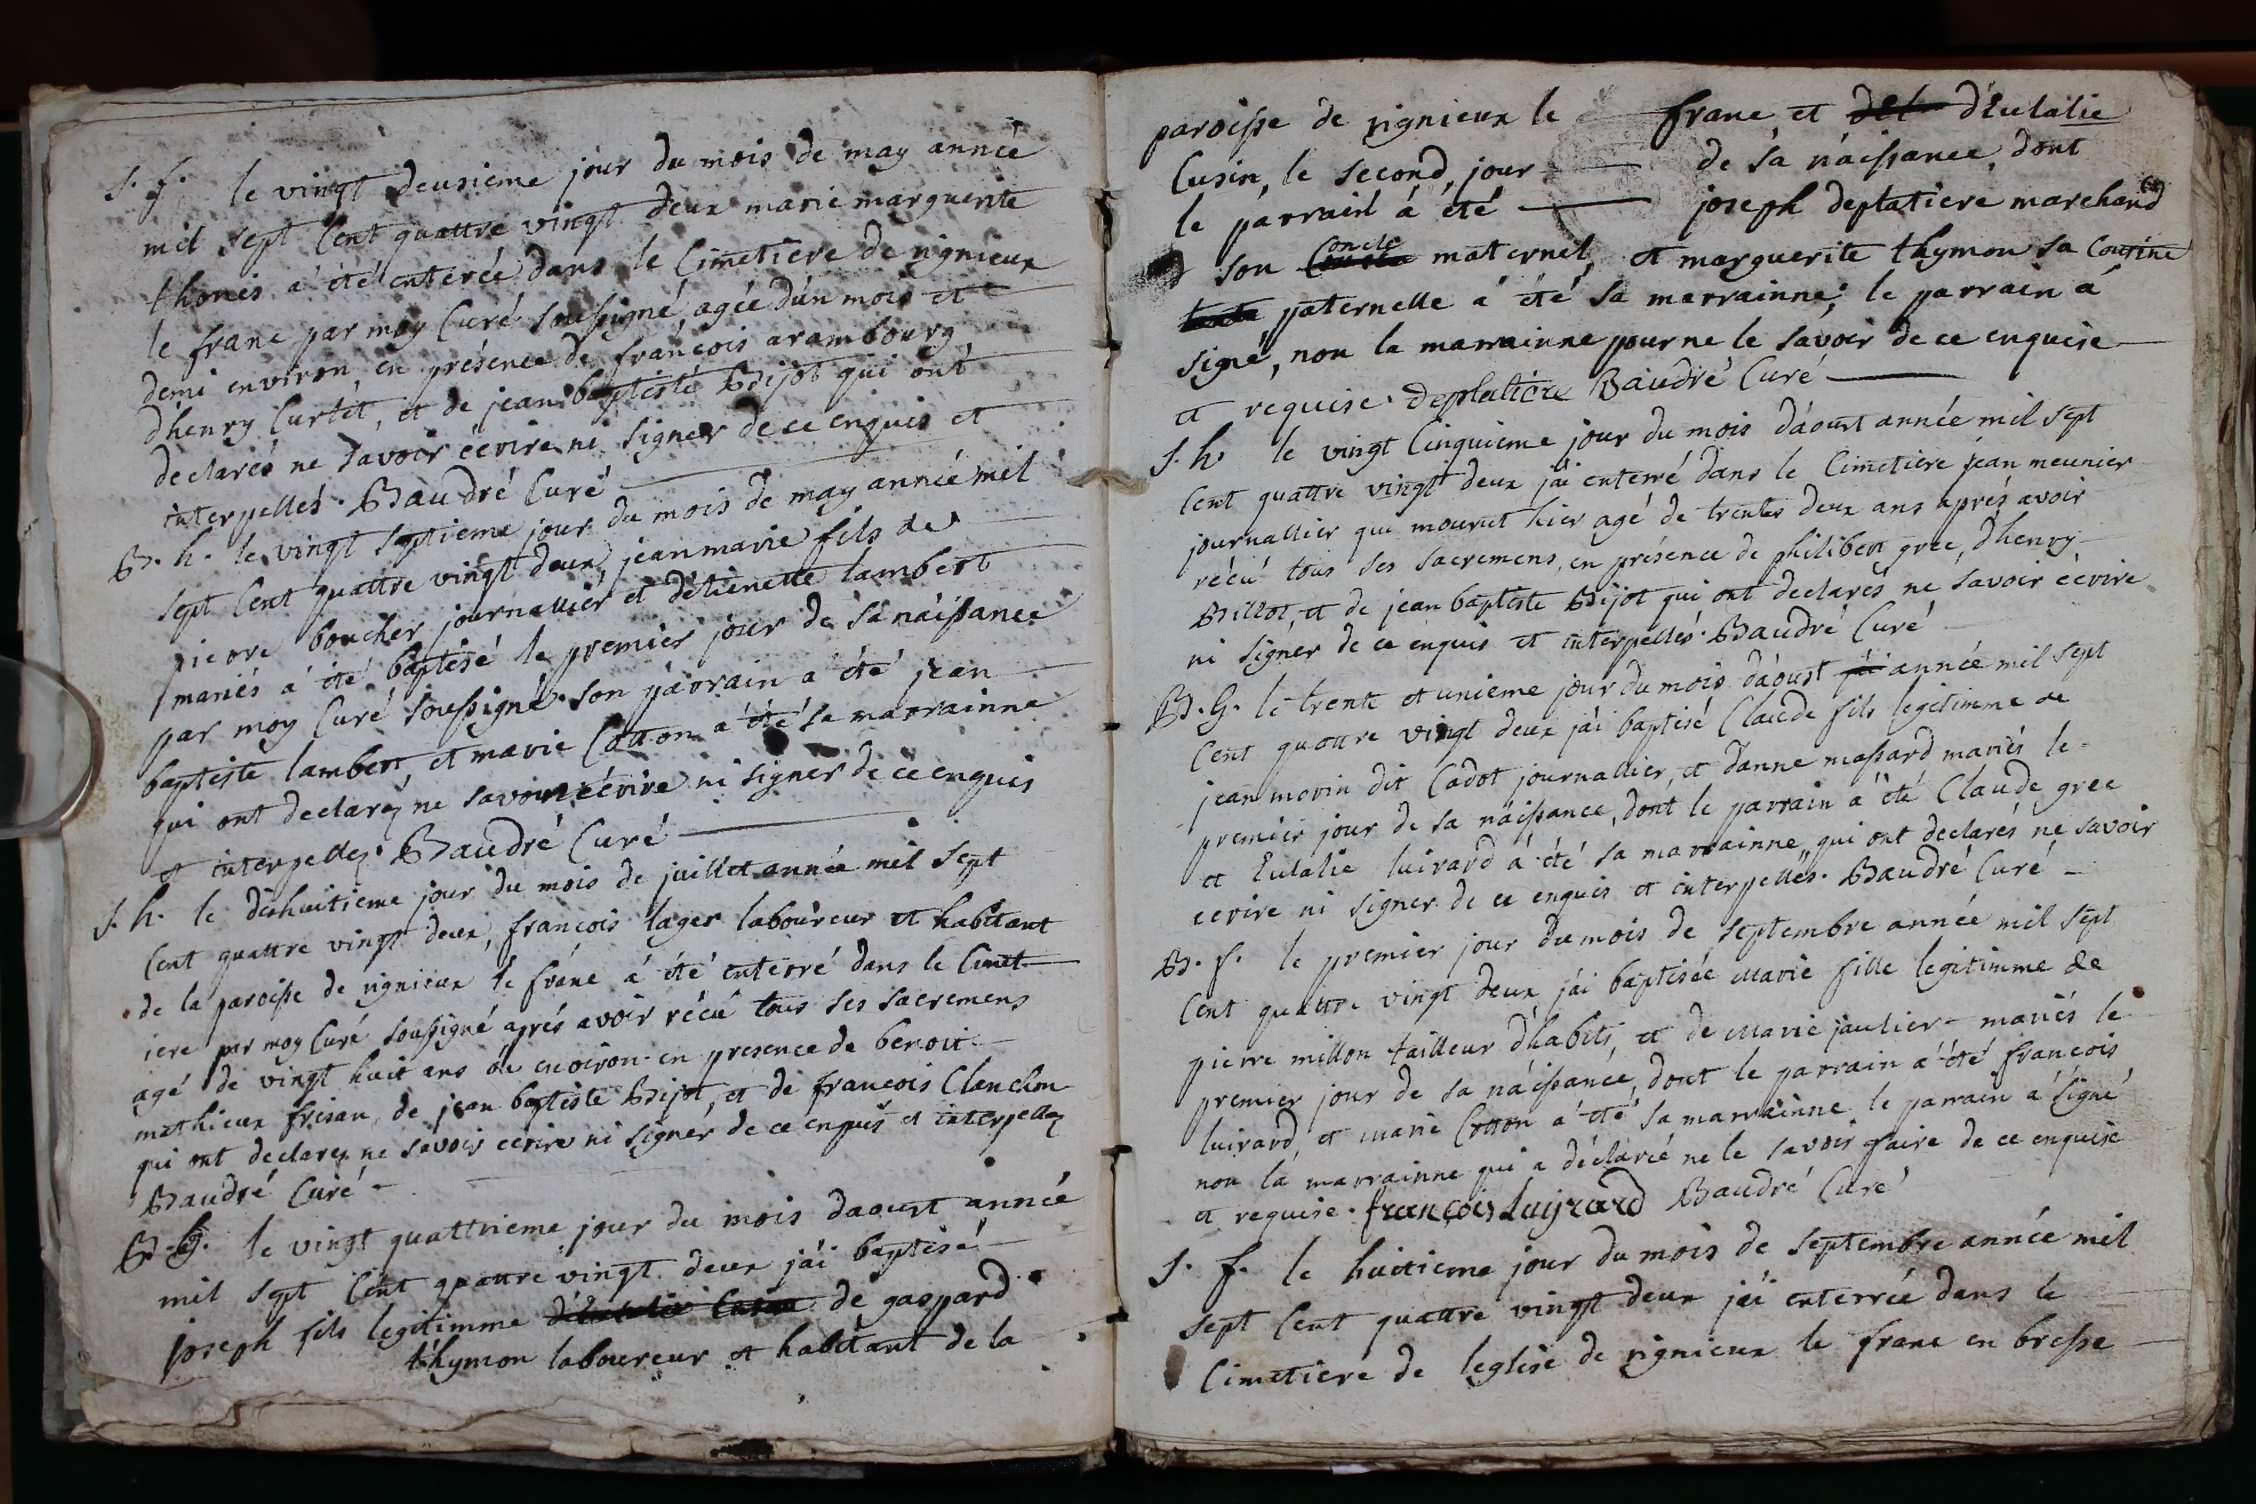 S. f. le vingt deusieme jour du mois de may année
mil sept Cent quattre vingt deux marie marguerite
thonés a été enterée dans le Cimetiere de rignieux
le franc par moy Curé soussigné agée d'un mois et
demi environ en présence de françois arambourg,
d'henry Curtet, et de jean baptiste Bijot qui ont
declarés ne savoir écrire ni signer de ce enquis et
interpellés. Baudré Curé
B. h. le vingt septieme jour du mois de may année mil
sept Cent quattre vingt deux jean marie fils de
pierre boucher journallier et d'étienette lambert
mariés a été baptisé le premier jour de sa naissance
par moy Curé soussigné. son parrain a été jean
baptiste lambert, et marie Cotton a été sa marrainne
qui ont declarez ne savoir écrire ni signer de ce enquis
et interpellez. Baudré Curé
S. h. le dishuitieme jour du mois de juillet année mil sept
Cent quattre vingt deux, françois lager laboureur et habitant
de la paroisse de rignieux le franc a été enterré dans le Cimet-
iere par moy Curé soussigné aprés avoir récu tous ses sacremens
agé de vingt huit ans ou environ en presence de benoit
mathieux frisan, de jean baptiste Bijot, et de francois Clanchon
qui ont declarez ne savoir ecrire ni signer de ce enquis et interpellez
Baudré Curé
B. G. le vingt quattrieme jour du mois daoust année
mil sept Cent quattre vingt deux j'ai baptisé
joseph fils legitimme de gaspard
thymon laboureur et habitant de la
paroisse de rignieux le franc et d'Eulalie
Cusin, le second jour de sa naissance, dont
le parrain a été joseph deplatiere marchand
son Oncle maternel, et marguerite thymon sa Cousine
paternelle a été sa marrainne; le parrain a
signé, non la marrainne pour ne le savoir de ce enquise
et requise. deplatiere Baudré Curé
S. h. le vingt Cinquieme jour du mois d'aoust année mil sept
Cent quattre vingt deux j'ai enterré dans le Cimetiere jean meunier
journallier qui mourut hier agé de trente deux ans aprés avoir
récu tous ses sacremens, en présence de philibert gree, d'henry
Billot, et de jean baptiste Bijot qui ont declarés ne savoir écrire
ni signer de ce enquis et interpellés. Baudré Curé
B. G. le trente et unieme jour du mois d'aoust année mil sept
Cent quattre vingt deux j'ai baptisé Claude fils legitimme de
jean morin dit Cadot journallier, et d'anne massard mariés le
premier jour de sa naissance, dont le parrain a été Claude gree
et Eulalie luirard a été sa marrainne, qui ont declarés ne savoir
ecrire ni signer de ce enquis et interpellés. Baudré Curé
B. f. le premier jour du mois de septembre année mil sept
Cent quattre vingt deux j'ai baptisée Marie fille legitimme de
pierre millon tailleur d'habits, et de Marie jaulier mariés le
premier jour de sa naissance, dont le parrain a été francois
luirard, et Marie Cotton a été sa marrainne le parrain a signé
non la marrainne qui a déclarée ne le savoir faire de ce enquise
et requise. françois Luirard Baudré Curé
S. f. le huitieme jour du mois de septembre année mil
sept Cent quattre vingt deux j'ai enterrée dans le
Cimetiere de leglise de rignieux le franc en bresse